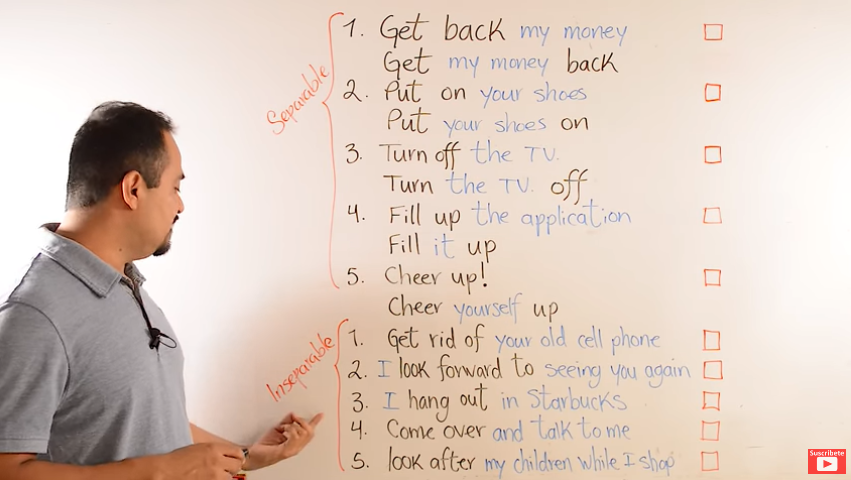 Separable
1. Get back my money
Get my money back
2. Put on your shoes
Put your shoes on
3. Turn off the TV.
Turn the TV. off
4. Fill up the application
Fill it up
5. Cheer up!
Cheer yourself up
Inseparable
1. Get rid of your old cell phone
2. I look forward to seeing you again
3. I hang out in Starbucks
4. Come over and talk to me
5. look after my children while I shop
Suscribete